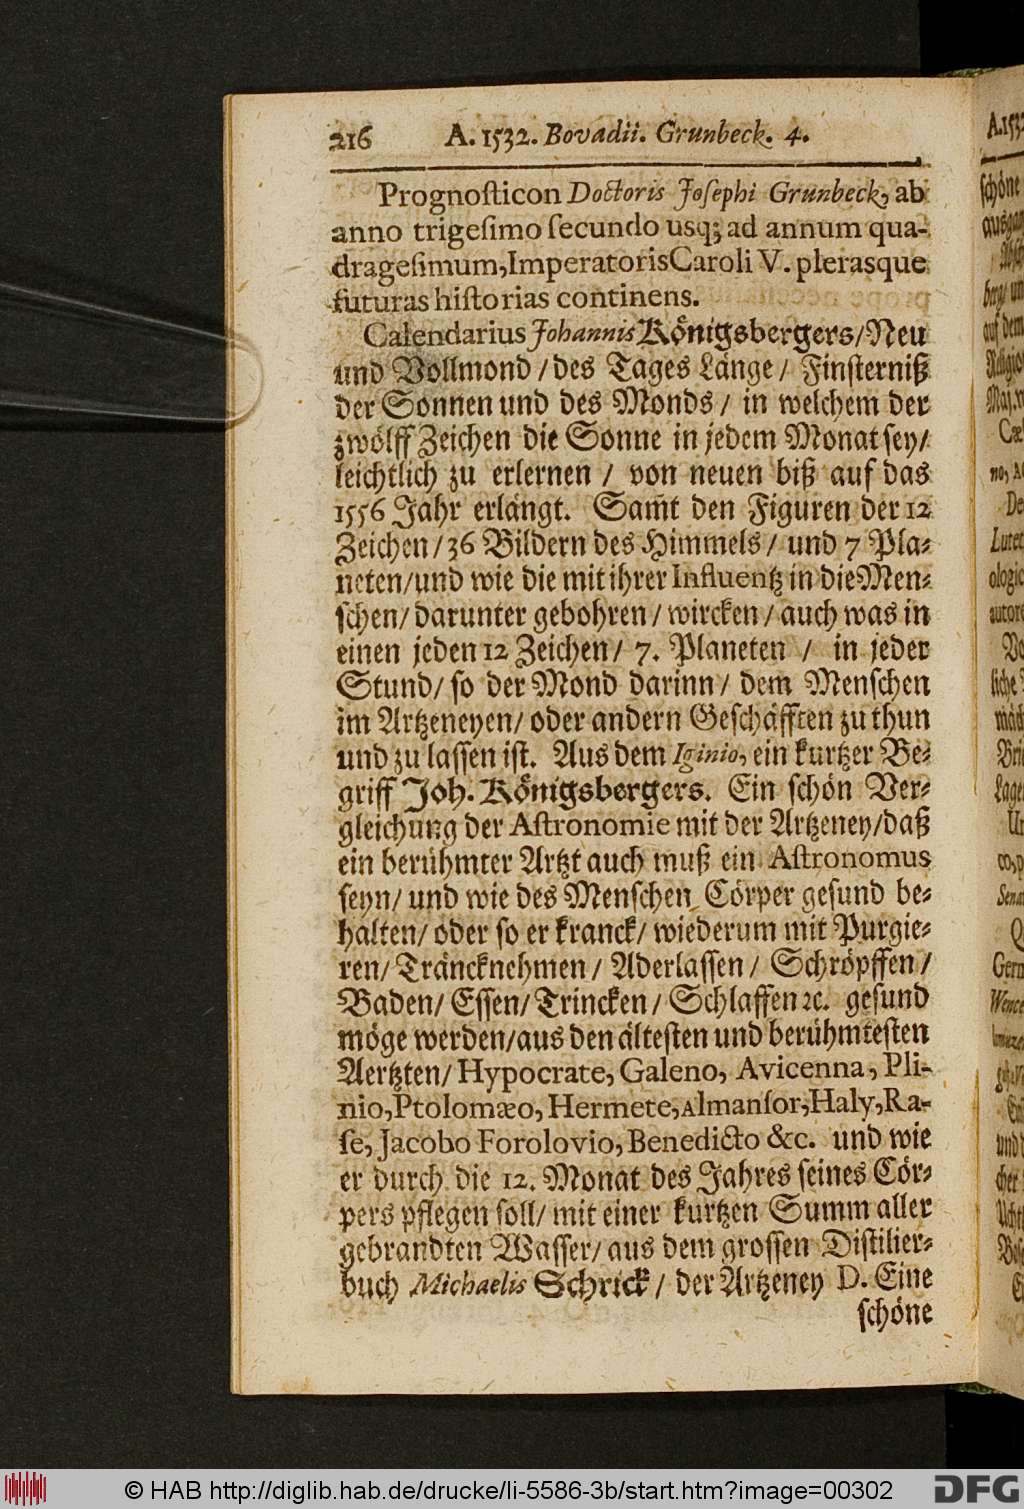 216 A. 1532. Bovadii. Grunbeck. 4.
Prognosticon Doctoris Josephi Grunbeck, ab
anno trigesimo secundo usq; ad annum qua-
dragesimum, Imperatoris Caroli V. plerasque
futuras historias continens.
Calendarius Johannis Königsbergers/ Neu
und Vollmond / des Tages Länge / Finsterniß
der Sonnen und des Monds / in welchem der
zwölff Zeichen die Sonne in jedem Monat sey/
leichtlich zu erlernen / von neuen biß auf das
1556 Jahr erlängt. Sam̃t den Figuren der 12
Zeichen / 36 Bildern des Himmels / und 7 Pla-
neten/ und wie die mit ihrer Influentz in die Men-
schen/ darunter gebohren / wircken / auch was in
einen jeden 12 Zeichen / 7. Planeten / in jeder
Stund/ so der Mond darinn / dem Menschen
im Artzeneyen/ oder andern Geschäfften zu thun
und zu lassen ist. Aus dem Iginio, ein kurtzer Be-
griff Joh. Königsbergers. Ein schön Ver-
gleichung der Astronomie mit der Artzeney/ daß
ein berühmter Artzt auch muß ein Astronomus
seyn/ und wie des Menschen Cörper gesund be-
halten/ oder so er kranck/ wiederum mit Purgie-
ren/ Träncknehmen / Aderlassen / Schröpffen /
Baden/ Essen/ Trincken / Schlaffen ꝛc. gesund
möge werden/ aus den ältesten und berühmtesten
Aertzten/ Hypocrate, Galeno, Avicenna, Pli-
nio, Ptolomæo, Hermete, Almansor, Haly, Ra-
se, Jacobo Forolovio, Benedicto &c. und wie
er durch die 12. Monat des Jahres seines Cör-
pers pflegen soll/ mit einer kurtzen Summ aller
gebrandten Wasser/ aus dem grossen Distilier-
buch Michaelis Schrick / der Artzeney D. Eine
schöne
© HAB http://diglib.hab.de/drucke/li-5586-3b/start.htm?image=00302
DFG